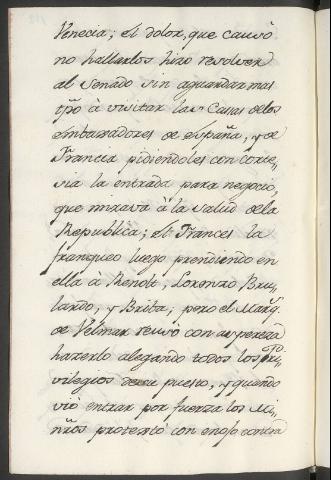 Venecia; el dolor, que causò
no hallarlos hizo resolver
al Senado sin aguardar mas
tpõ à visitar las Casas delos
embaxadores de España, y de
Francia pidiendoles con corte„
sia la entrada para negocio,
que mirava à la salud dela
Republica; el Frances la
franqueo luego prendiendo en
ella à Renolt, Lorenzo Bru„
lardo, y Briba; pero el Marq.
de Velmar reusò con aspereza
hazerlo alegando todos los Pri„
vilegios de su puesto, y quando
viò entrar por fuerza los Mi„
nr̃os protestò con enojo contra